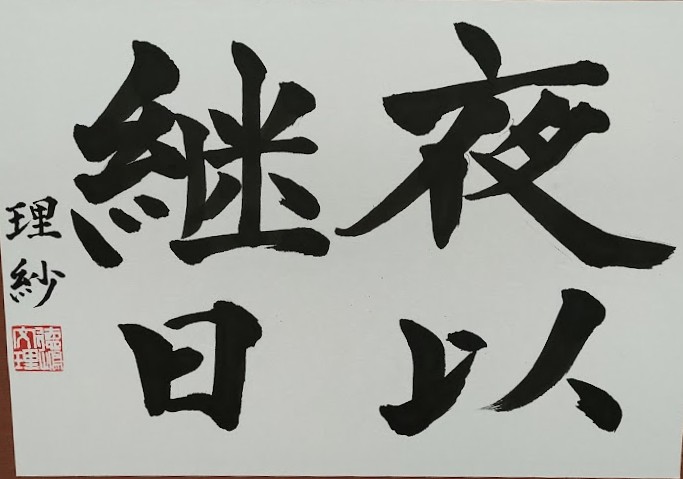 夜以
継日
理紗